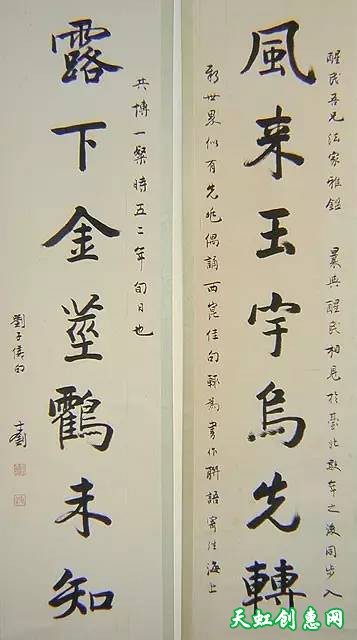 風来玉宇烏先轉
醒民吾兄法家雅鑑 曩與醒民相見於臺北數年之後同步入
新世界似有先兆偶誦西崑佳句輒為書作聯語寄往海上
露下金莖鸖未知
共博一粲時五二年旬日也
劉子
天虹创惠网